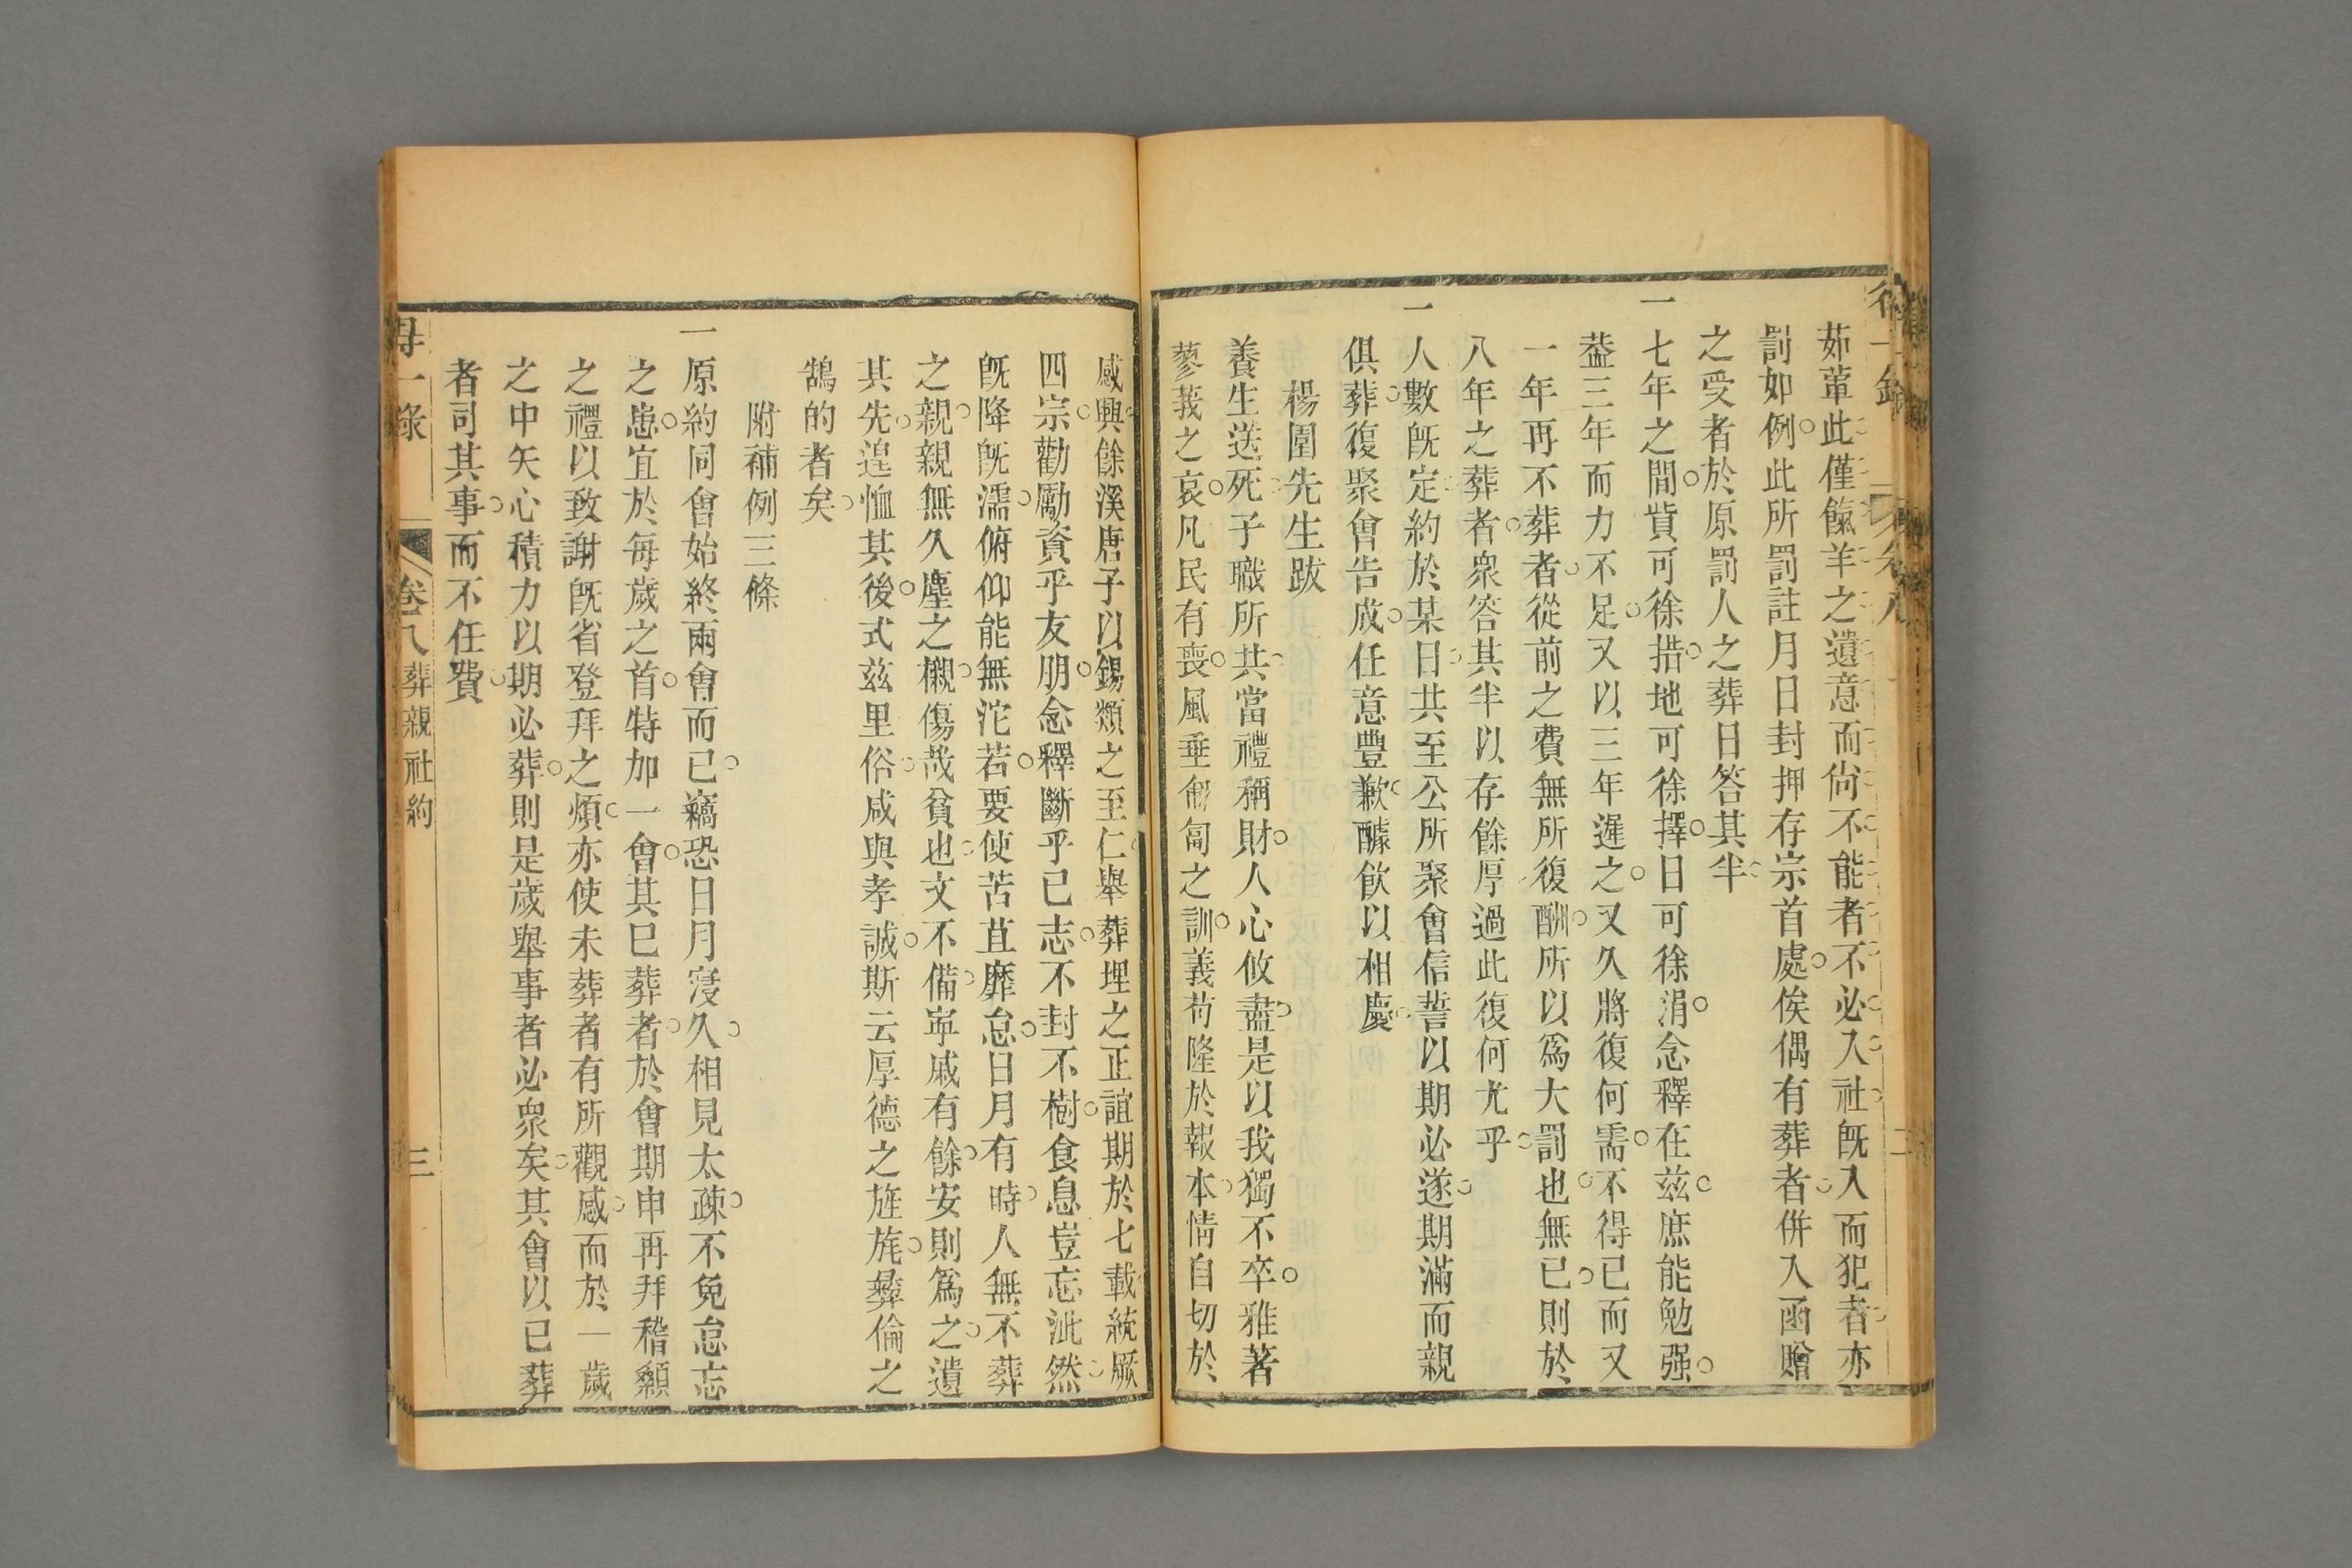 茹葷此僅餼羊之遺意而尙不能者不必入社旣入而犯者亦
罰如例此所罰註月日封押存宗首處俟偶有葬者併入函贈
之受者於原罰人之葬日答其半
一七年之間貲可徐措地可徐擇日可徐涓念釋在兹庶能勉强
葢三年而力不足又以三年遲之又久將復何需不得已而又
一年再不葬者從前之費無所復酬所以爲大罰也無已則於
八年之葬者衆答其半以存餘厚過此復何尤乎
一人數旣定約於某日共至公所聚會信誓以期必遂期滿而親
俱葬復聚會告成任意豐歉醵飮以相慶
楊園先生跋
養生送死子職所共當禮稱財人心攸盡是以我獨不卒雅著
蓼莪之哀凡民有喪風垂匍匐之訓義苟隆於報本情自切於
感興餘溪唐子以錫類之至仁舉葬埋之正誼期於七載統厥
四宗勸勵資乎友朋念釋斷乎已志不封不樹食息豈忘泚然
旣降旣濡俯仰能無沱若要使苫苴靡怠日月有時人無不葬
之親親無久塵之櫬傷哉貧也文不備寧戚有餘安則爲之遺
其先遑恤其後式兹里俗咸與孝誠斯云厚德之旌旄彝倫之
鵠的者矣
附補例三條
一原約同會始終兩會而已竊恐日月寖久相見太疎不免怠忘
之患宜於每歲之首特加一會其已葬者於會期申再拜稽顙
之禮以致謝旣省登拜之煩亦使未葬者有所觀感而於一歲
之中矢心積力以期必葬則是歲舉事者必衆矣其會以已葬
者司其事而不任費
毋一錄
卷八 葬親社約
三